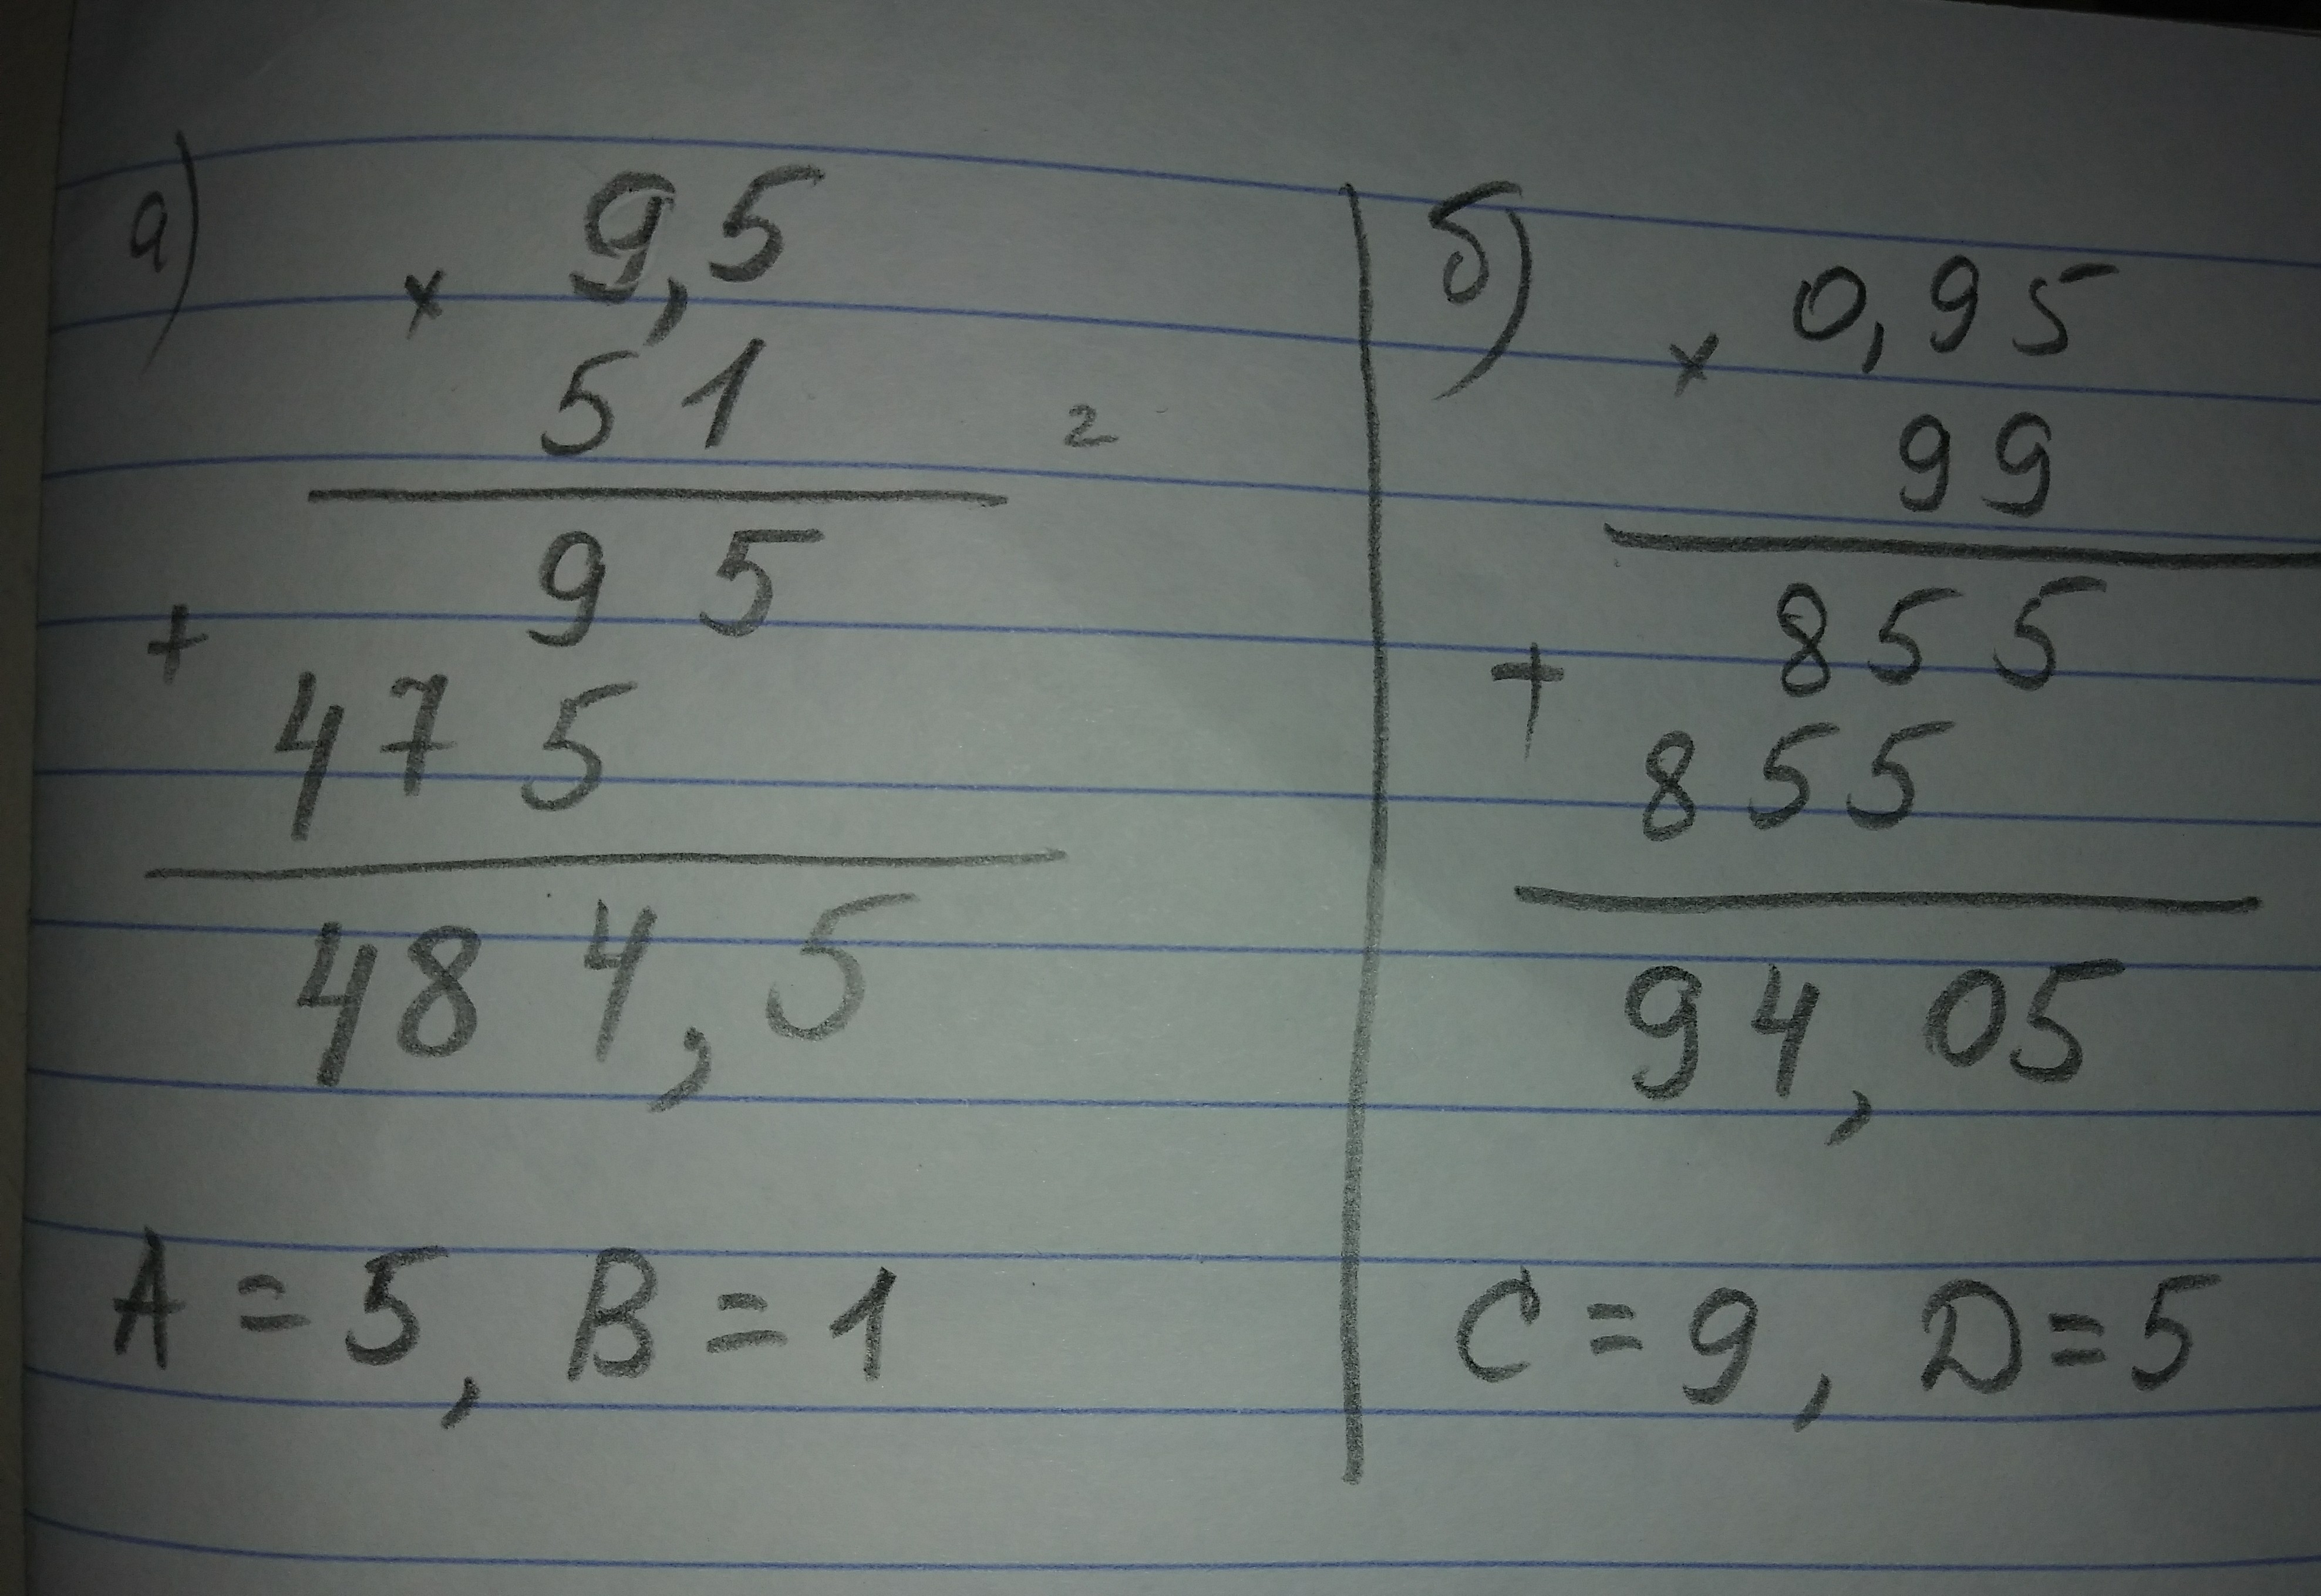 а)
× 9,5
51 =
95
+
475
484,5
A = 5, B = 1
б)
× 0,95
99
855
+
855
94,05
C = 9, D = 5